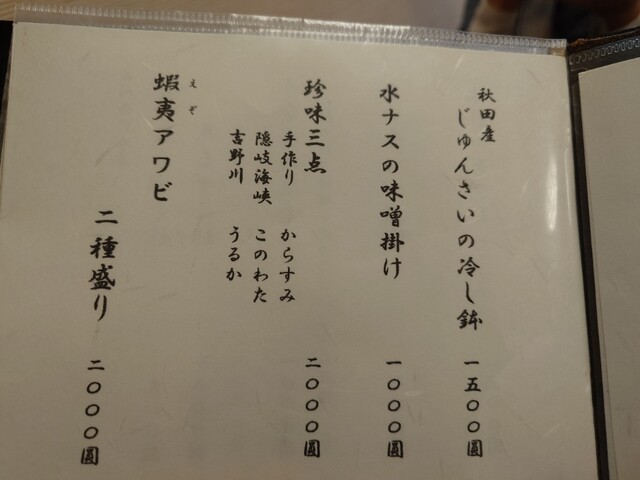 秋田産
じゅんさいの冷し鉢 一五〇〇圓
水ナスの味噌掛け 一〇〇〇圓
珍味三点 二〇〇〇圓
手作り からすみ
隠岐海峡 このわた
吉野川 うるか
蝦夷アワビ
えぞ
二種盛り 二〇〇〇圓